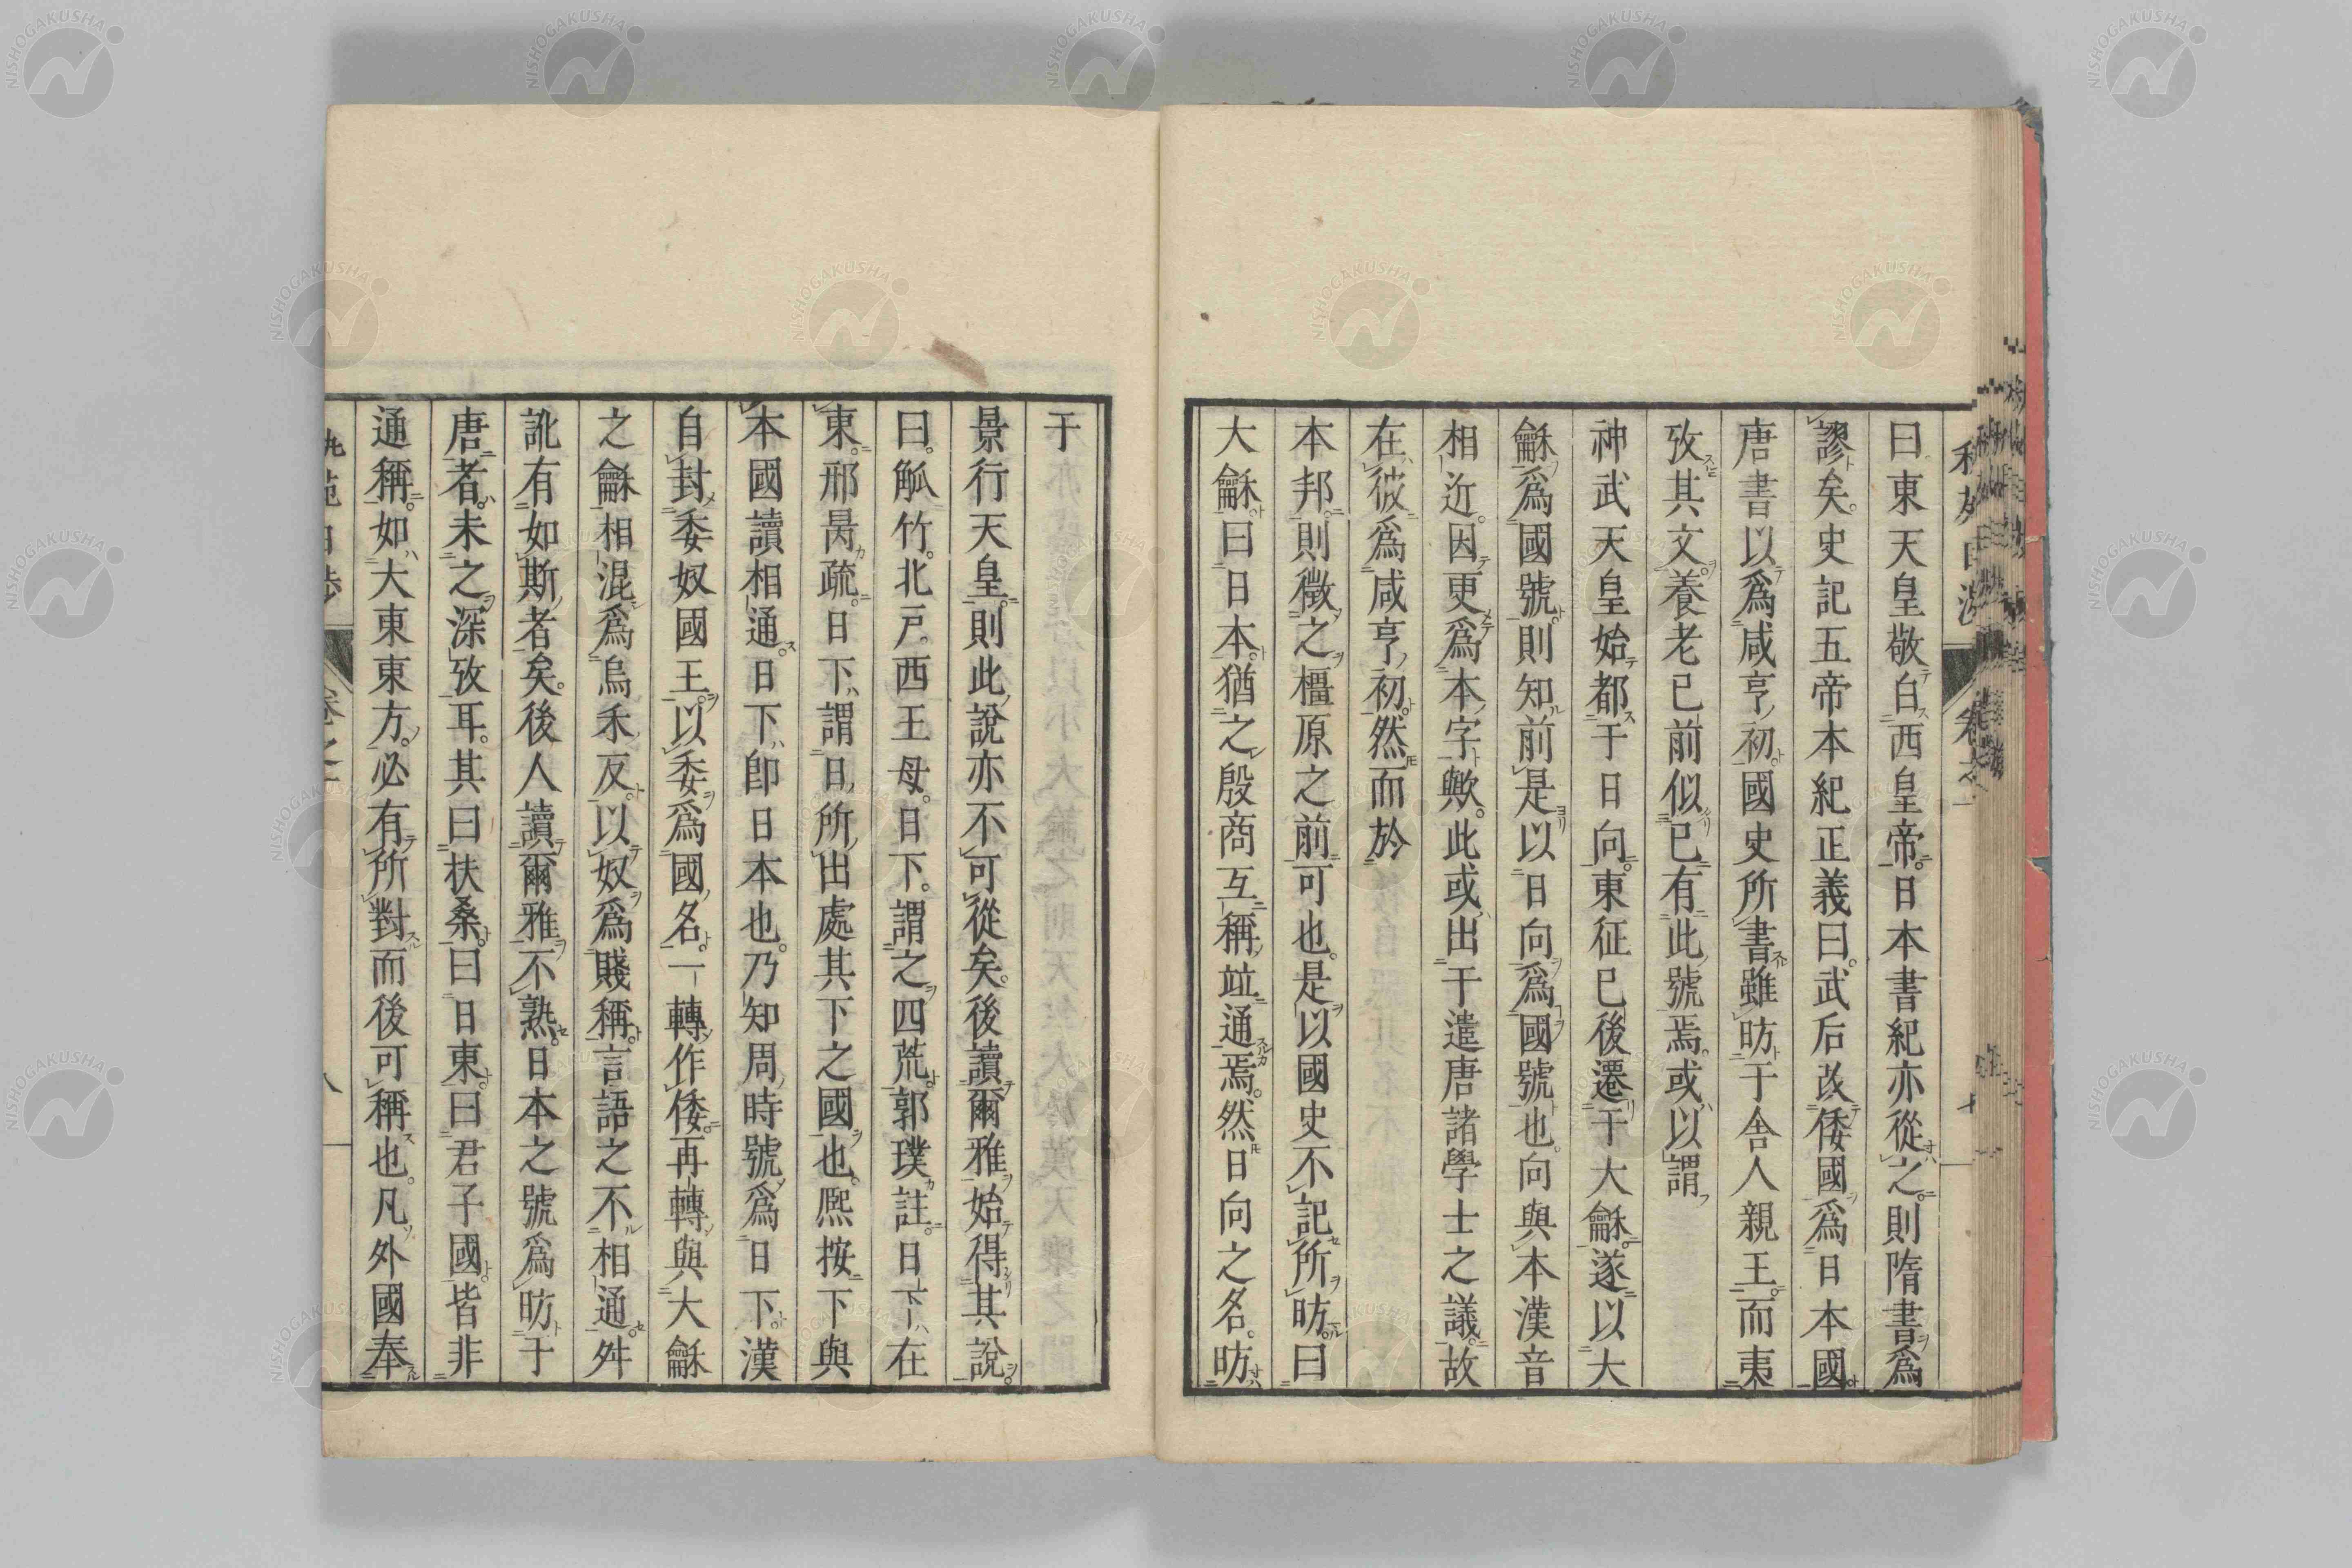 曰東天皇敬白西皇帝。日本書紀亦從之。則隋書爲
謬矣。史記五帝本紀正義曰。武后改倭國爲日本國。
唐書以爲咸亨初。國史所書雖昉于舍人親王。而夷
攷其文。養老已前似已有此號焉。或以謂
神武天皇始都于日向。東征已後遷于大龢。遂以大
龢爲國號。則知前是以日向爲國號也。向與本漢音
相近。因更爲本字歟。此或出于遣唐諸學士之議。故
在彼爲咸亨初。然而於
本邦。則徵之橿原之前可也。是以國史不記所昉。曰
大龢。曰日本。猶之殷商互稱竝通焉。然日向之名。昉
于
景行天皇。則此說亦不可從矣。後讀爾雅。始得其說。
曰。觚竹。北戸。西王母。日下。謂之四荒。郭璞註。日下在
東。邢昺疏。日下謂日所出處其下之國也。熈按下與
本國讀相通。日下即日本也。乃知周時號爲日下。漢
自封委奴國王。以委爲國名。一轉作倭。再轉與大龢
之龢相混爲烏禾反。以奴爲賤稱。言語之不相通舛
訛有如斯者矣。後人讀爾雅不熟。日本之號爲昉于
唐者。未之深攷耳。其曰扶桑。曰日東。曰君子國。皆非
通稱。如大東東方。必有所對而後可稱也。凡外國奉
八
NISHOGAKUSHA